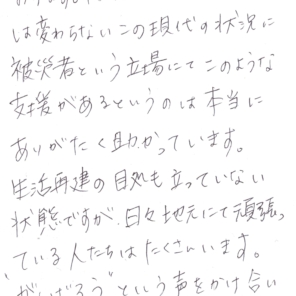 は変わらないこの現代の状況に
被災者という立場にてこのような
支援があるというのは本当に
ありがたく助かっています。
生活再建の目処も立っていない
状態ですが、日々地元にて頑張っ
ている人たちはたくさんいます。
“がんばろう”という声をかけ合い